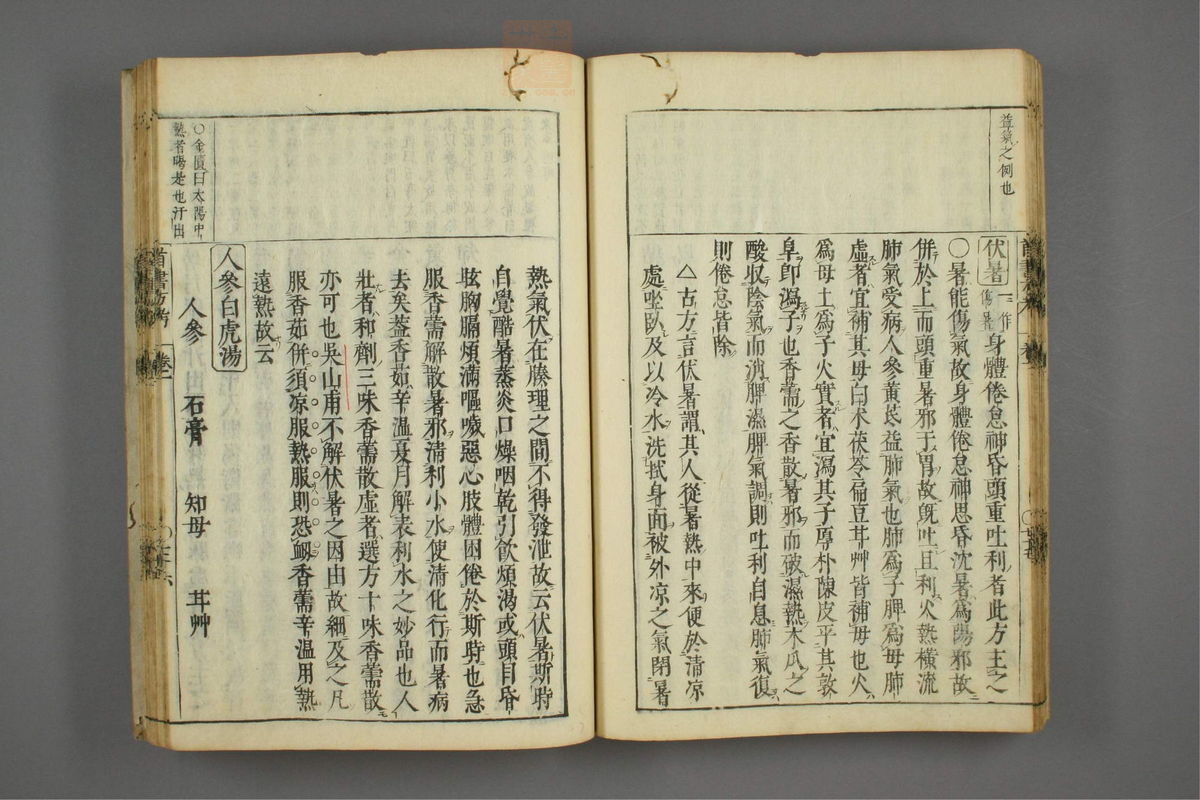 益氣之例也
伏暑 一作傷暑 身體倦怠神昏頭重吐利者此方主之
○暑能傷氣故身體倦怠神思昏沈暑爲陽邪故
併於上而頭重暑邪于胃故既吐且利火熱橫流
肺氣受病人參黃芪益肺氣也肺爲子脾爲母肺
虛者宜補其母白朮茯苓扁豆甘艸皆補母也火
爲母土爲子火實者宜瀉其子厚朴陳皮平其敦
阜卽瀉子也香薷之香散暑邪而破濕熱木瓜之
酸収陰氣而消脾濕脾氣調則吐利自息肺氣復
則倦怠皆除
△古方言伏暑謂其人從暑熱中來便於清凉
處坐臥及以冷水洗拭身面被外凉之氣閉暑
熱氣伏在藤理之間不得發泄故云伏暑斯時
自覺酷暑蒸炎口燥咽乾引飮煩渴或頭目昏
眩胸膈煩滿嘔噦惡心肢體困倦於斯時也急
服香薷解散暑邪清利小水使清化行而暑病
去矣葢香茹辛溫夏月解表利水之妙品也人
壯者和劑三味香薷散虛者選方十味香薷散
亦可也吳山甫不解伏暑之因由故細及之凡
服香茹併須凉服熱服則恐衂香薷辛溫用熱
遠熱故云
人參白虎湯
人參 石膏 知母 甘艸
○金匱曰太陽中
熱者暍是也汗出
首書方考 卷一